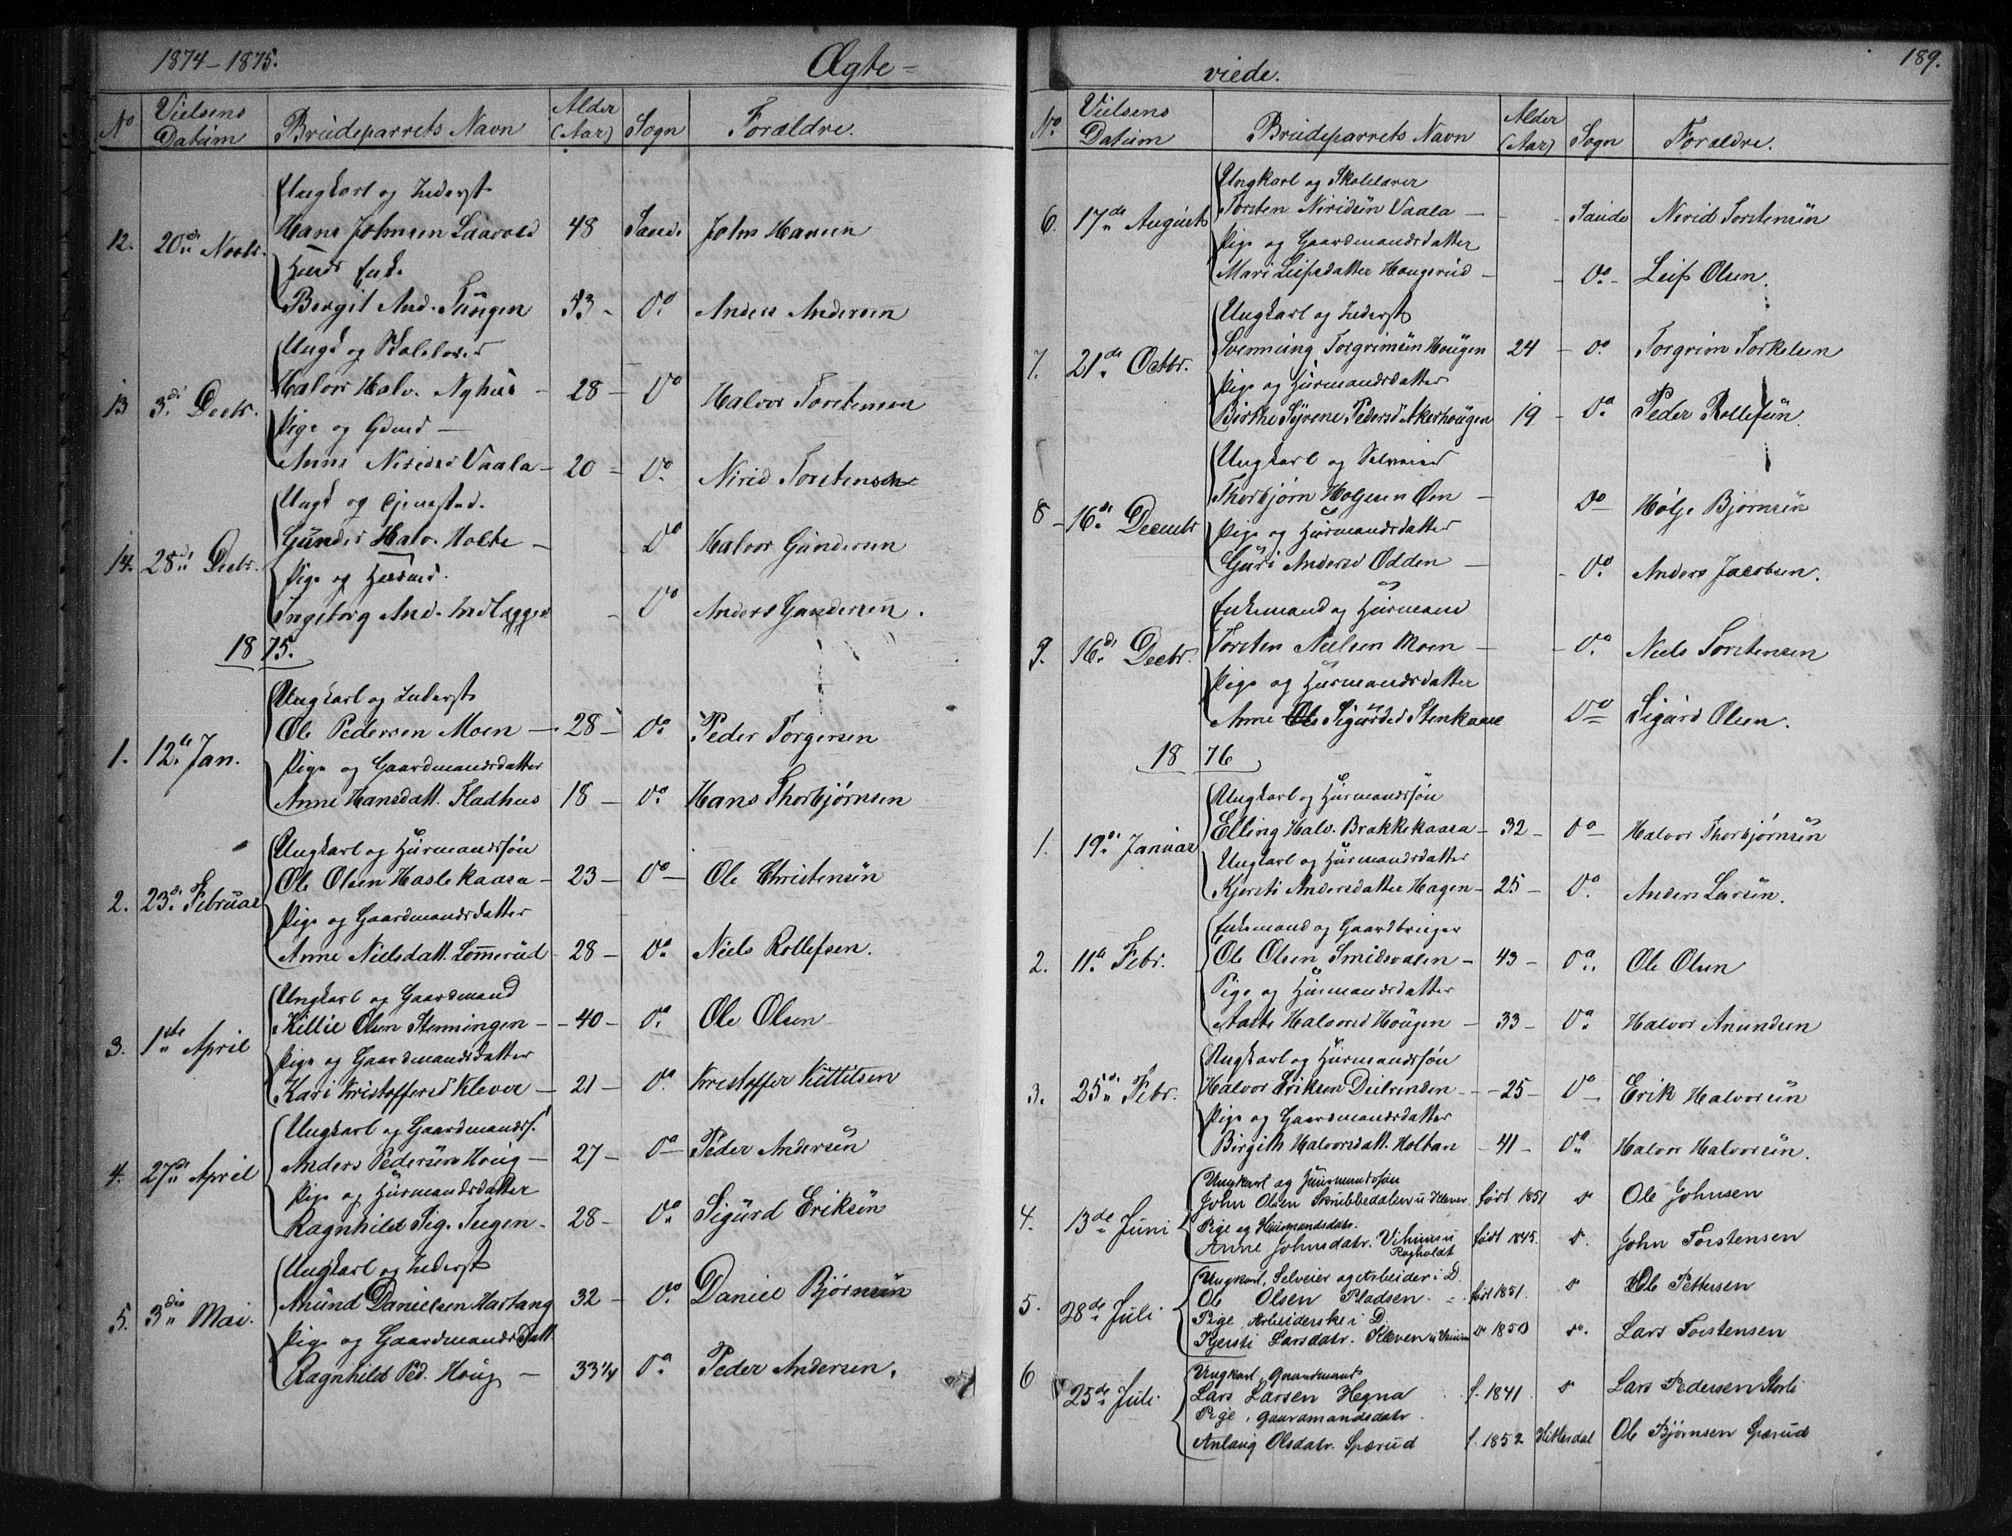 1874–1875. Ægte-
No Vielsens Datum Brudeparrets Navn Alder (Aar) Sogn Forældre.
Ungkarl og Inderst
12. 20de Novbr. Hans Johnsen 48 Saude John Hansen
Enke
Bergit And. Tungen 53 – Do Anders Andersen
Ungk og Skolelærer
13 3de Decbr. Halvor Halv. Nyhus – 28 – Do Halvor Torstensen
Pige og Gdmd –
Anne Nirids Vaala – 20 – Do Nirid Torstensen
Ungk og
14. 28de Decbr. Gunder Halv. Holte – Do Halvor Gundersen
Pige og Husmd.
Ingeborg And. – Do Anders Gundersen.
1875.
Ungkarl og Inderst
1. 12te Jan. Ole Pedersen Moen – 28 – Do Peder Torgersen
Pige og Gaardmandsdatter
Anne Hansdatt. Fladhus 18 – Do Hans Thorbjørnsen
Ungkarl og Husmandssøn
2. 23de Februar Ole Olsen Haslekaasa – 23 – Do – Ole Christensen
Pige og Gaardmandsdatter
Anne Nielsdatt. Lommerud – 28 – Do Niels Rollefsen.
Ungkarl og Gaardmand
3. 1ste April Kittil Olsen Stenningen – 40 – Do Ole Olsen
Pige og Gaardmandsdatter
Kari Kristoffersd Klever – 21 – Do Kristoffer Kittilsen
Ungkarl og Gaardmands.
4. 27de April Anders Pedersen Houg – 27 – Do Peder Andersen
Pige og Husmandsdatter
Ragnhild Sig. Teigen – 28 – Do Sigurd Eriksen
Ungkarl og Inderst
5. 3die Mai. Anund Danielsen Hartang 32 – Do Daniel Bjørnsen
Pige og Gaardmandsdatt.
Ragnhild Ped. Houg – 33¼ Do Peder Andersen.
viede. 189.
No Vielsens Datum Brudeparrets Navn Alder (Aar) Sogn Forældre.
Ungkarl og Skolelærer
6. 17de August Torsten Niridsen Vaala – – Saude Nirid Torstensen
Pige og Gaardmandsdatter
Mari Leifsdatter Haugerud – – Do – Leif Olsen.
Ungkarl og Inderst
7. 21de Octbr. Svennung Torgrimsen Hougen 24 – Do Torgrim Torkelsen
Pige og Husmandsdatter
Birthe Syrene Pedersd Akerhougen 19 – Do Peder Rollefsen.
Ungkarl og Selveier
8 – 16de Decembr Thorbjørn Holjesen Øen – Do Holje Bjørnsen
Pige og Husmandsdatter
Guri Andersd Odden – – Do Anders Jacobsen.
Enkemand og Husmand
9. 16de Decbr. Torsten Nielsen Moen – – Do Niels Torstensen
Pige og Husmandsdatter
Anne Sigurdsd Stenkaase Do Sigurd Olsen.
1876
Ungkarl og Husmandssøn
1. 19de Januar Elling Halv. Brakkekaasa – 32 – Do – Halvor Thorbjørnsen
Ungkarl og Husmandsdatter
Kjersti Andersdatter Hagen – 25 – Do. Anders Larsen.
Enkemand og Gaardbruger
2. 11te Febr. Ole Olsen Smidsvalen – 43 – Do. Ole Olsen
Pige og Husmandsdatter
Aaste Halvorsd Hougen – 33 – Do Halvor Anundsen
Ungkarl og Husmandssøn
3. 25de Febr. Halvor Eriksen – 25 – Do Erik Halvorsen
Pige og Gaardmandsdatter
Birgith Halvorsdatt. Holtan – 41 – Do Halvor Halvorsen.
Ungkarl og Huusmandssøn
4. 13de Juni John Olsen Skrubbedalen u Klever født 1851 Do Ole Johnsen
Pige og Huusmandsdatr.
Anne Johnsdatr. født 1845. Do. John Torstensen
Ungkarl, Selveier og Arbeider i D.
5. 28de Juli Ole Olsen Pladsen født 1851. Do Ole Pettersen
Pige Arbeiderske i D.
Kjersti Larsdatr. Kleven Do 1850 Do. Lars Torstensen
6 Ungkarl, Gaardmand
25de Juli Lars Larsen Hegna f. 1841 Do Lars Pedersen
Pige, Gaardmandsdatr
Anlaug Olsdatr. Spærud f. 1852 Hitterdal Ole Bjørnsen Spærud